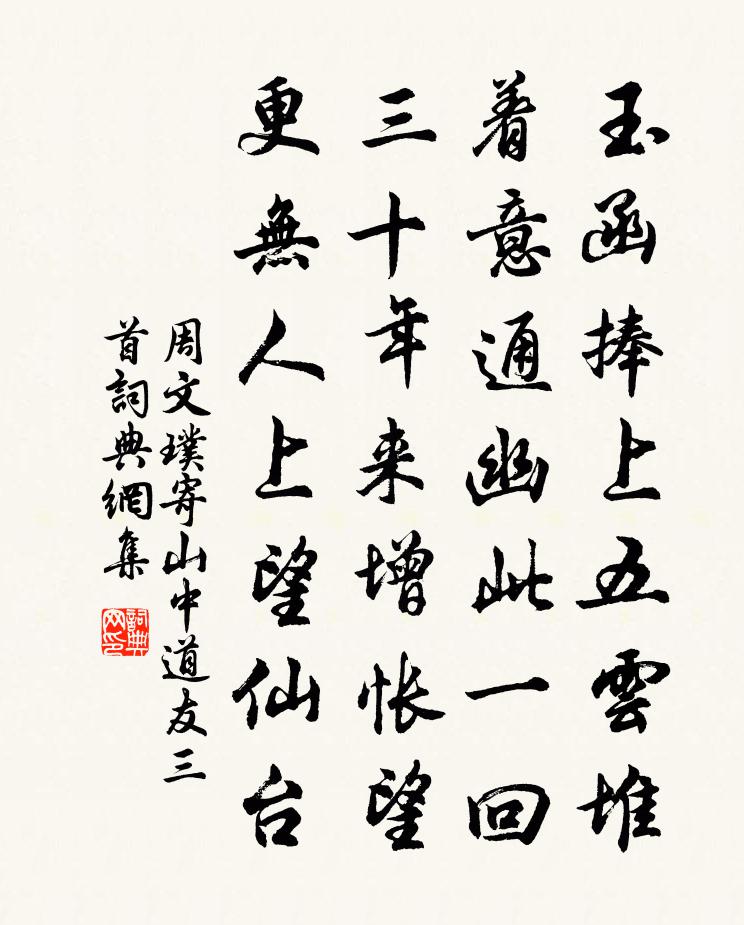 玉函捧上五雲堆
着意通幽此一回
三十年来增悵望
更無人上望仙台
周文璞寄山中道友三
首詞典網集
詞典
网印